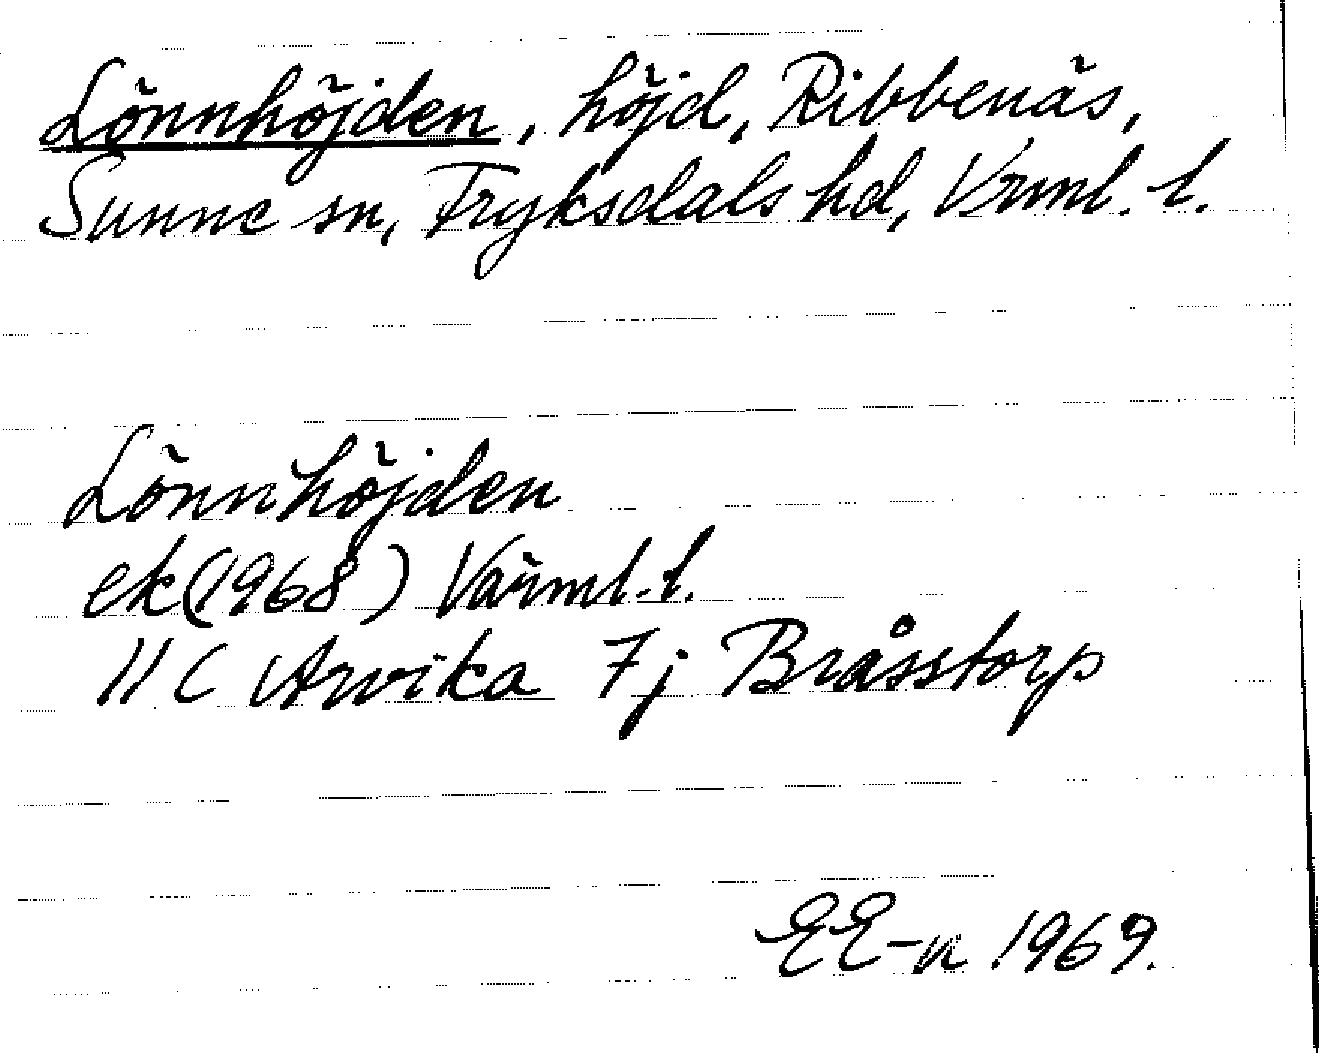 Lönnhöjden, höjd, Ribbenäs,
Sunne sn, Fryksdals hd, Vrml. l.
Lönnhöjden
ek (1968) Värml. l.
11 C Arvika 7j Bråsstorp
EE-n 1969.